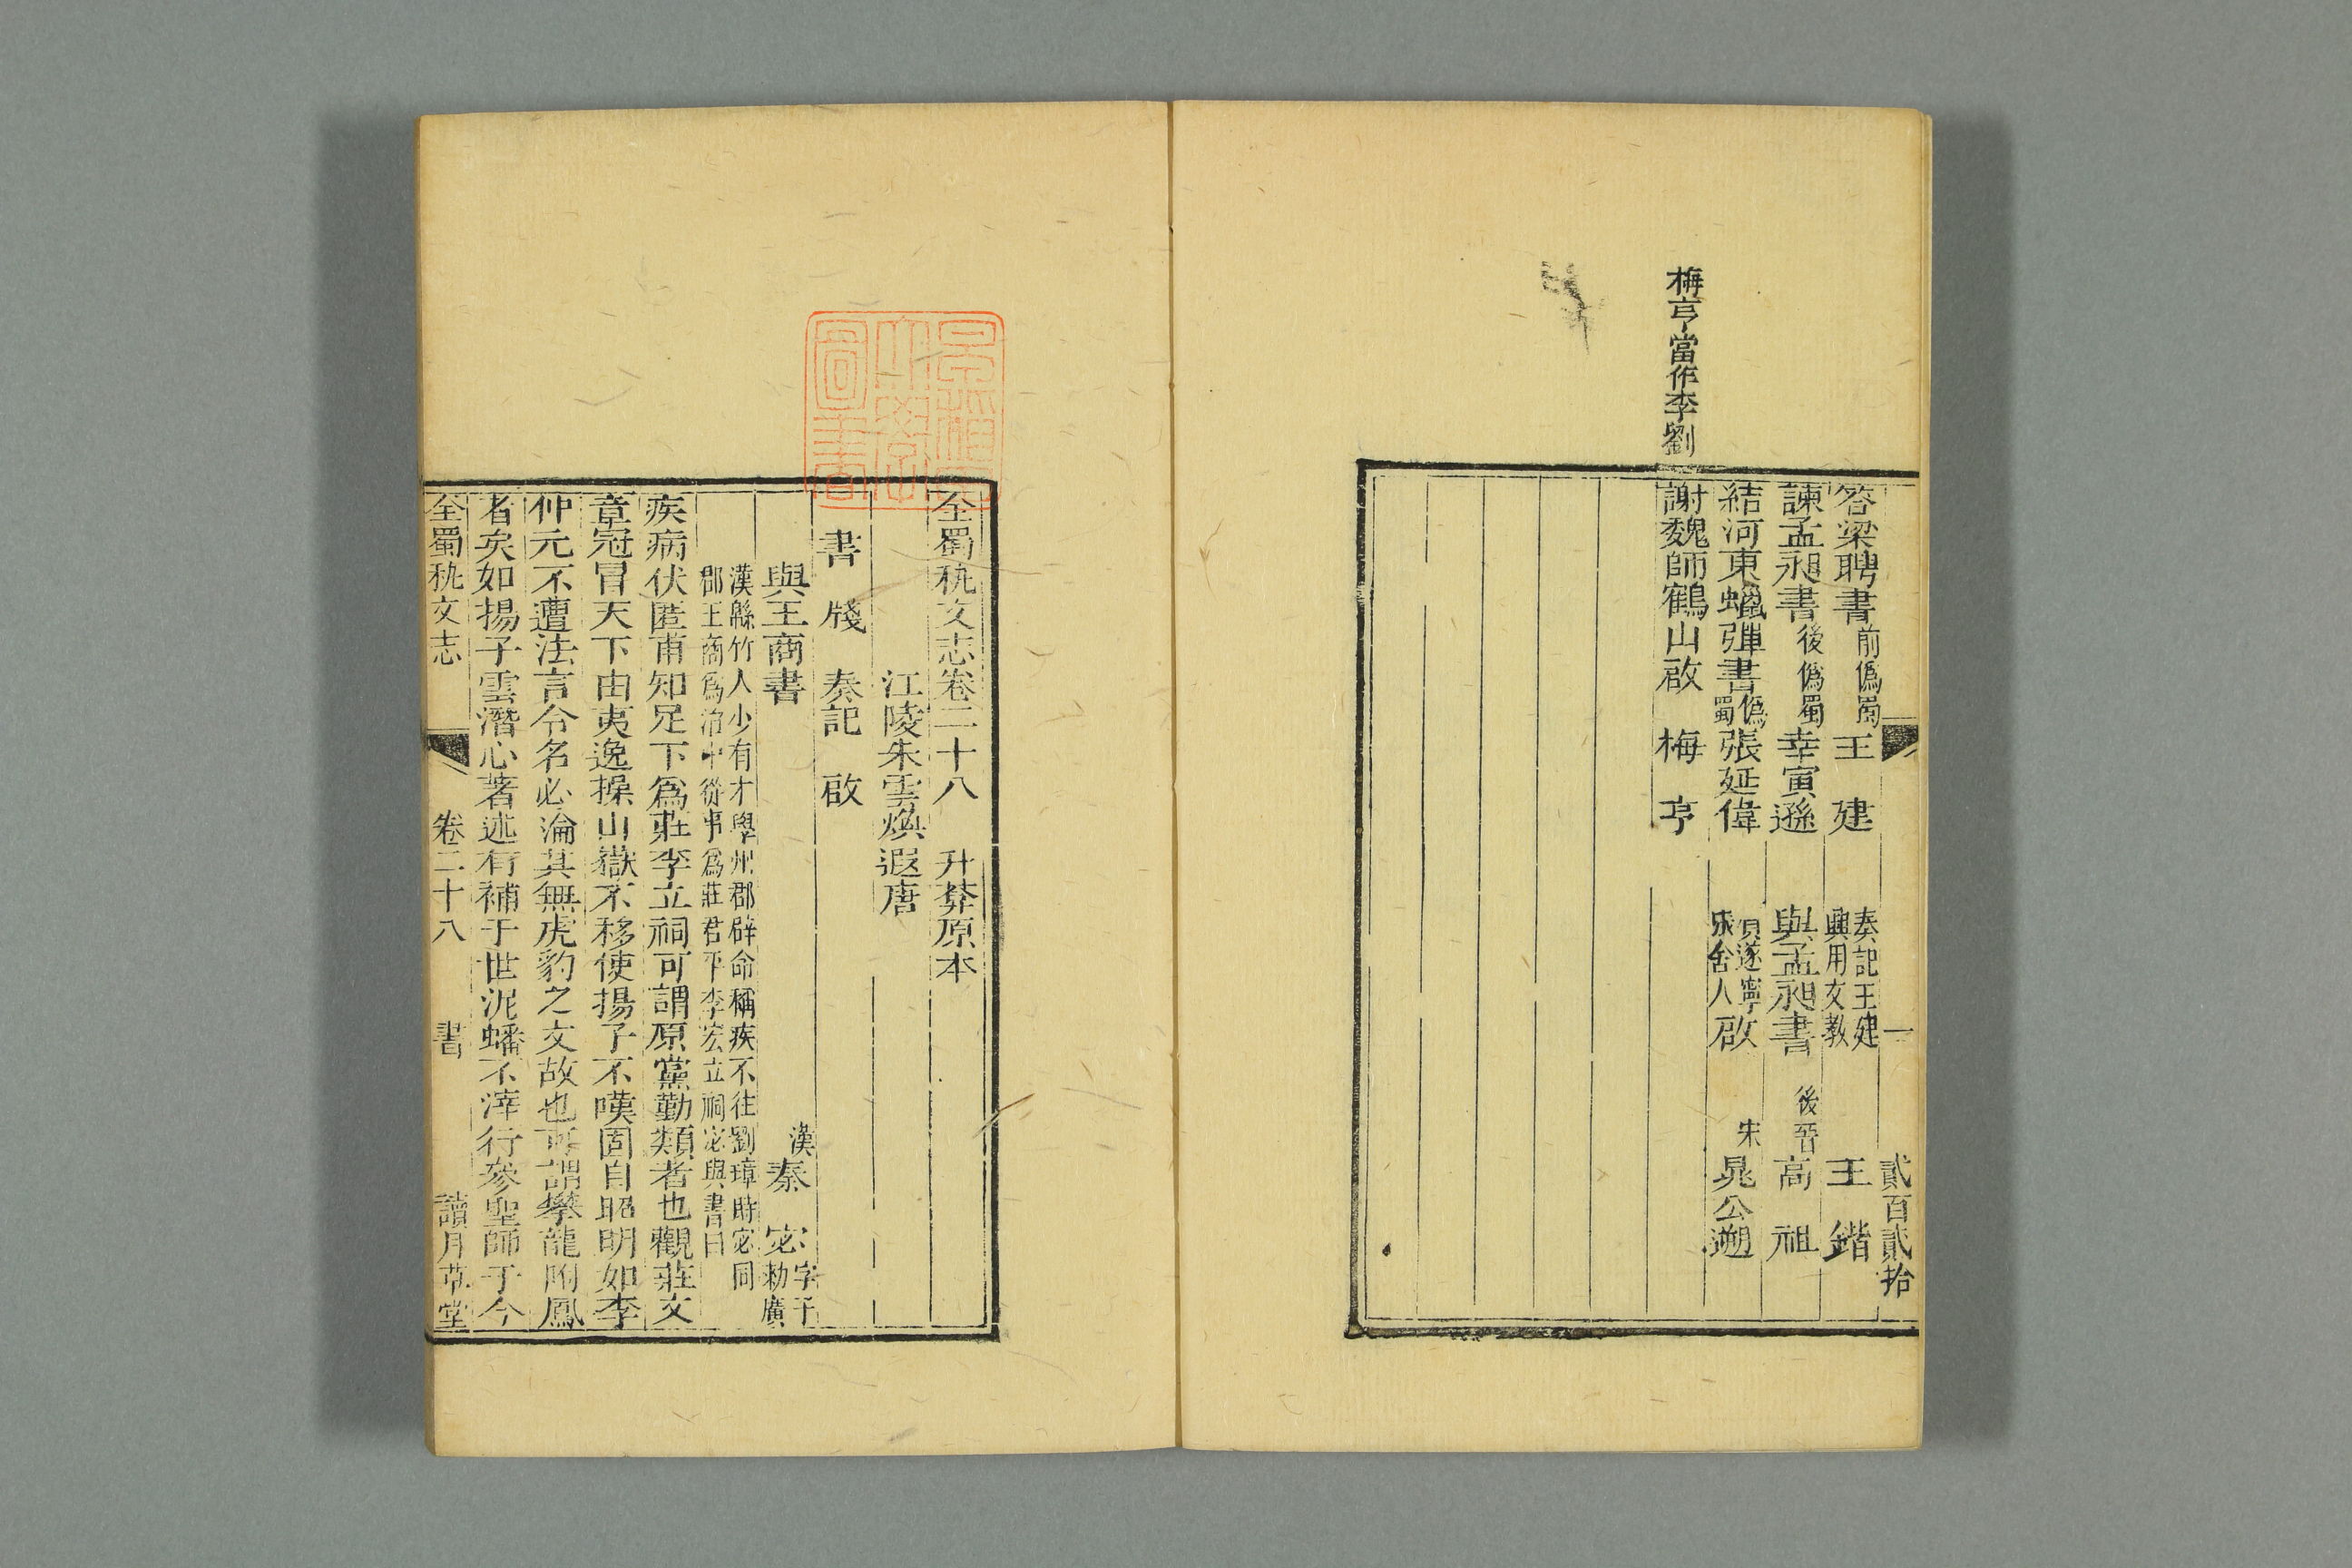 梅亨當作李劉
一　貳百貳拾
答梁聘書前僞蜀王建　奏記王建興用文教　王鍇
諫孟昶書後僞蜀幸寅遜　與孟昶書後晉高祖
結河東蠟彈書僞蜀張延偉　遂寧舍人啟宋晁公遡
謝魏師鶴山啟　梅亨
全蜀秇文志卷二十八　升菴原本
江陵朱雲煥遐唐
書　牋　奏記　啟
與王商書　漢秦宓宓字子勑廣
漢緜竹人少有才學州郡辟命稱疾不往劉璋時宓同
郡王商爲治中從事爲莊君平李宏立祠宓與書曰
疾病伏匿甫知足下爲莊李立祠可謂原黨勤類者也觀莊文
章冠冒天下由夷逸操山嶽不移使揚子不嘆固自昭明如李
仲元不遭法言令名必淪其無虎豹之文故也可謂攀龍附鳳
者矣如揚子雲潛心著述有補于世泥蟠不滓行參聖師于今
全蜀秇文志　卷二十八　書　讀月草堂